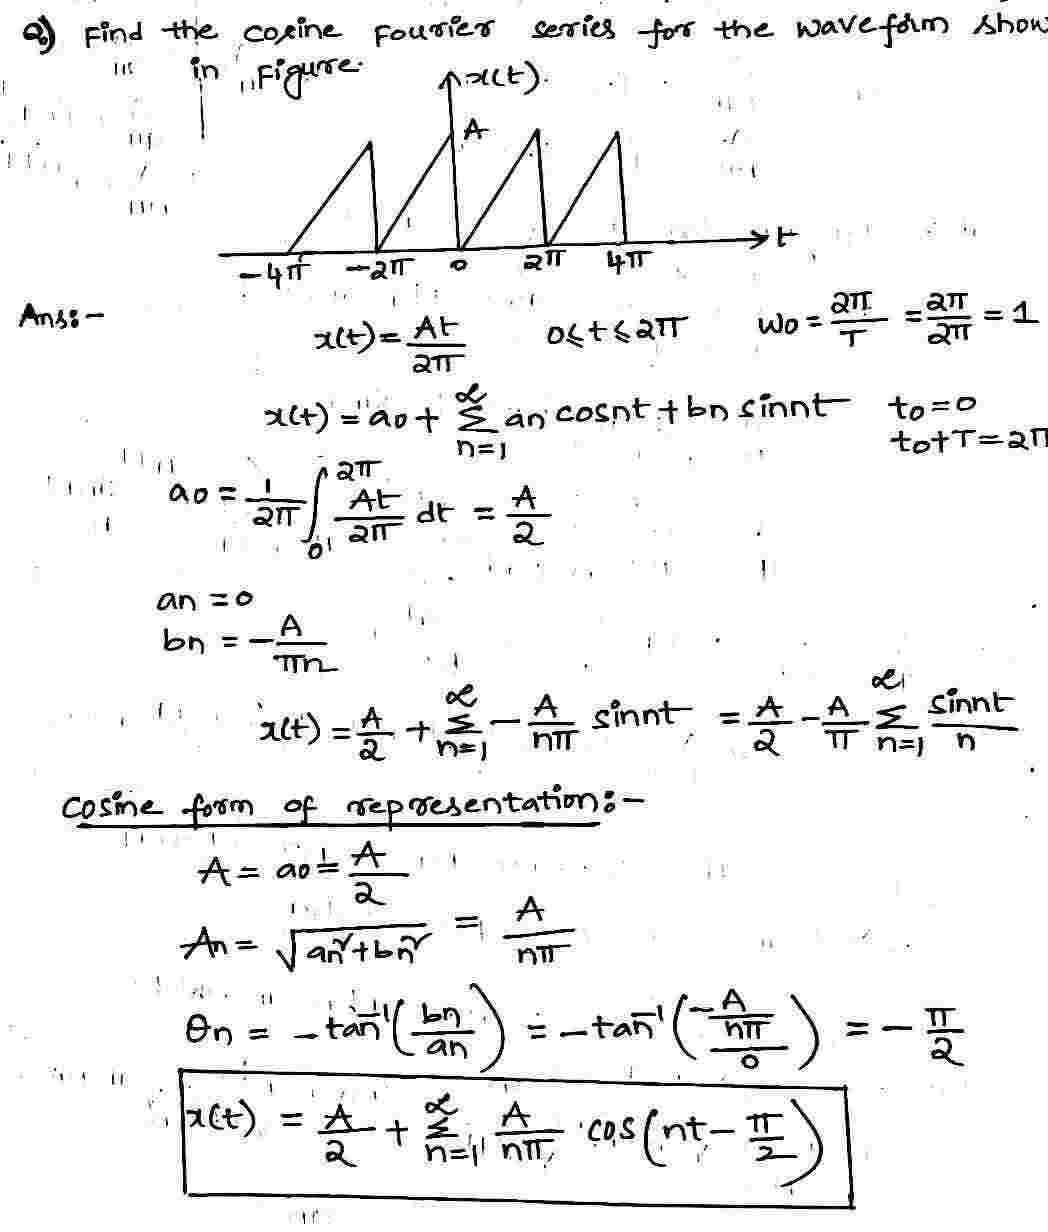 Q) Find the cosine Fourier series for the waveform show
in Figure.
x(t).
A
-4π -2π 0 2π 4π t
Ans:- x(t) = At/2π 0≤t≤2π ω0 = 2π/T = 2π/2π = 1
x(t) = a0 + ∑_{n=1}^{∞} an cosnt + bn sinnt t0=0
t0+T=2π
a0 = 1/2π ∫_0^{2π} At/2π dt = A/2
an = 0
bn = -A/πn
x(t) = A/2 + ∑_{n=1}^{∞} -A/nπ sinnt = A/2 - A/π ∑_{n=1}^{∞} sinnt/n
Cosine form of representation:-
A = a0 = A/2
An = √(an²+bn²) = A/nπ
θn = -tan⁻¹(bn/an) = -tan⁻¹((-A/nπ)/0) = -π/2
x(t) = A/2 + ∑_{n=1}^{∞} A/nπ cos(nt - π/2)